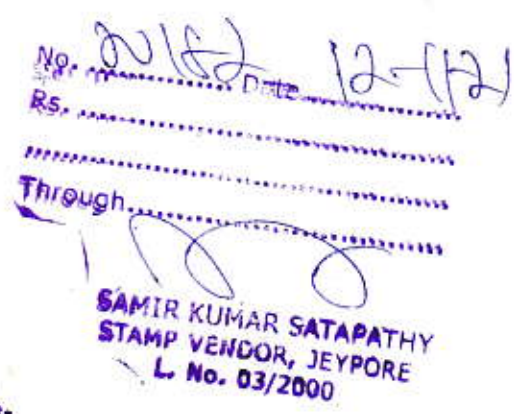 No. 20182 Date 12-1-121
Rs.
Through
SAMIR KUMAR SATAPATHY
STAMP VENDOR, JEYPORE
L. No. 03/2000